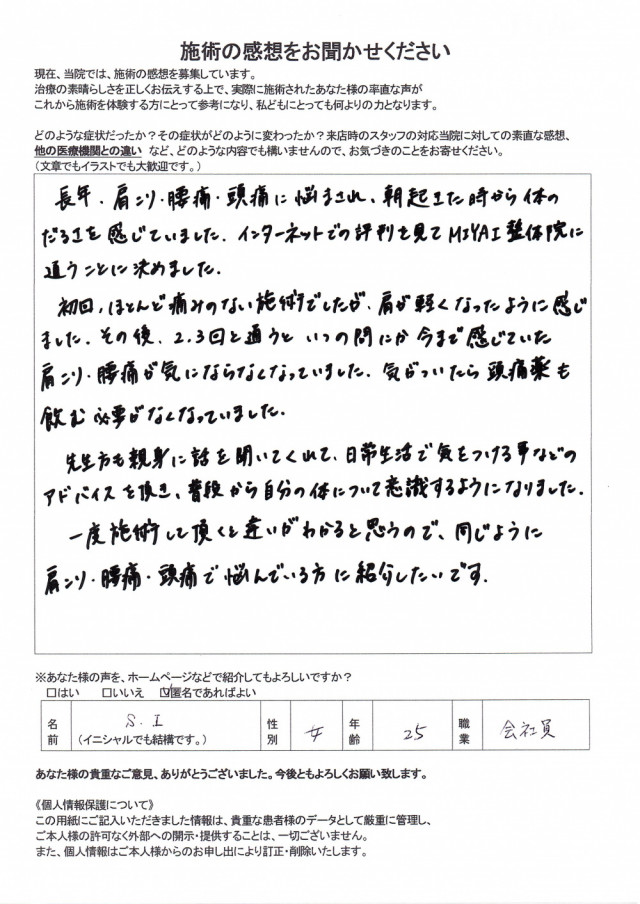 施術の感想をお聞かせください
現在、当院では、施術の感想を募集しています。
治療の素晴らしさを正しくお伝えする上で、実際に施術されたあなた様の率直な声が
これから施術を体験する方にとって参考になり、私どもにとっても何よりの力となります。
どのような症状だったか？その症状がどのように変わったか？来店時のスタッフの対応当院に対しての素直な感想、
他の医療機関との違い など、どのような内容でも構いませんので、お気づきのことをお寄せください。
（文章でもイラストでも大歓迎です。）
長年、肩こり・腰痛・頭痛に悩まされ、朝起きた時から体の
だるさを感じていました。インターネットでの評判を見てMIYAI整体院に
通うことに決めました。
初回、ほとんど痛みのない施術でしたが、肩が軽くなったように感じ
ました。その後、2.3回と通うといつの間にか今まで感じていた
肩こり・腰痛が気にならなくなっていました。気がついたら頭痛薬も
飲む必要がなくなっていました。
先生方も親身に話を聞いてくれて、日常生活で気をつける事などの
アドバイスを頂き、普段から自分の体について意識するようになりました。
一度施術して頂くと違いがわかると思うので、同じように
肩こり・腰痛・頭痛で悩んでいる方に紹介したいです。
※あなた様の声を、ホームページなどで紹介してもよろしいですか？
□はい □いいえ ☑匿名であればよい
名前 S.I （イニシャルでも結構です。） 性別 女 年齢 25 職業 会社員
あなた様の貴重なご意見、ありがとうございました。今後ともよろしくお願い致します。
《個人情報保護について》
この用紙にご記入いただきました情報は、貴重な患者様のデータとして厳重に管理し、
ご本人様の許可なく外部への開示・提供することは、一切ございません。
また、個人情報はご本人様からのお申し出により訂正・削除いたします。